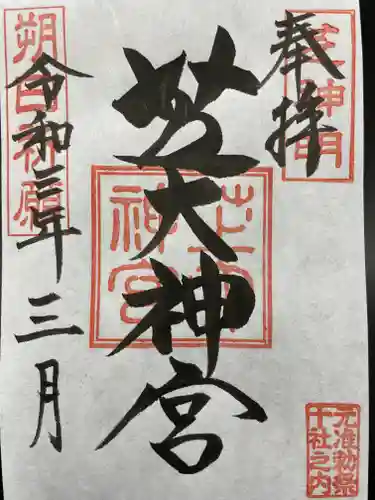 奉拝
芝大神宮
令和三年三月
芝神明
芝大神宮
朔日祈願
元准勅祭
十社之内